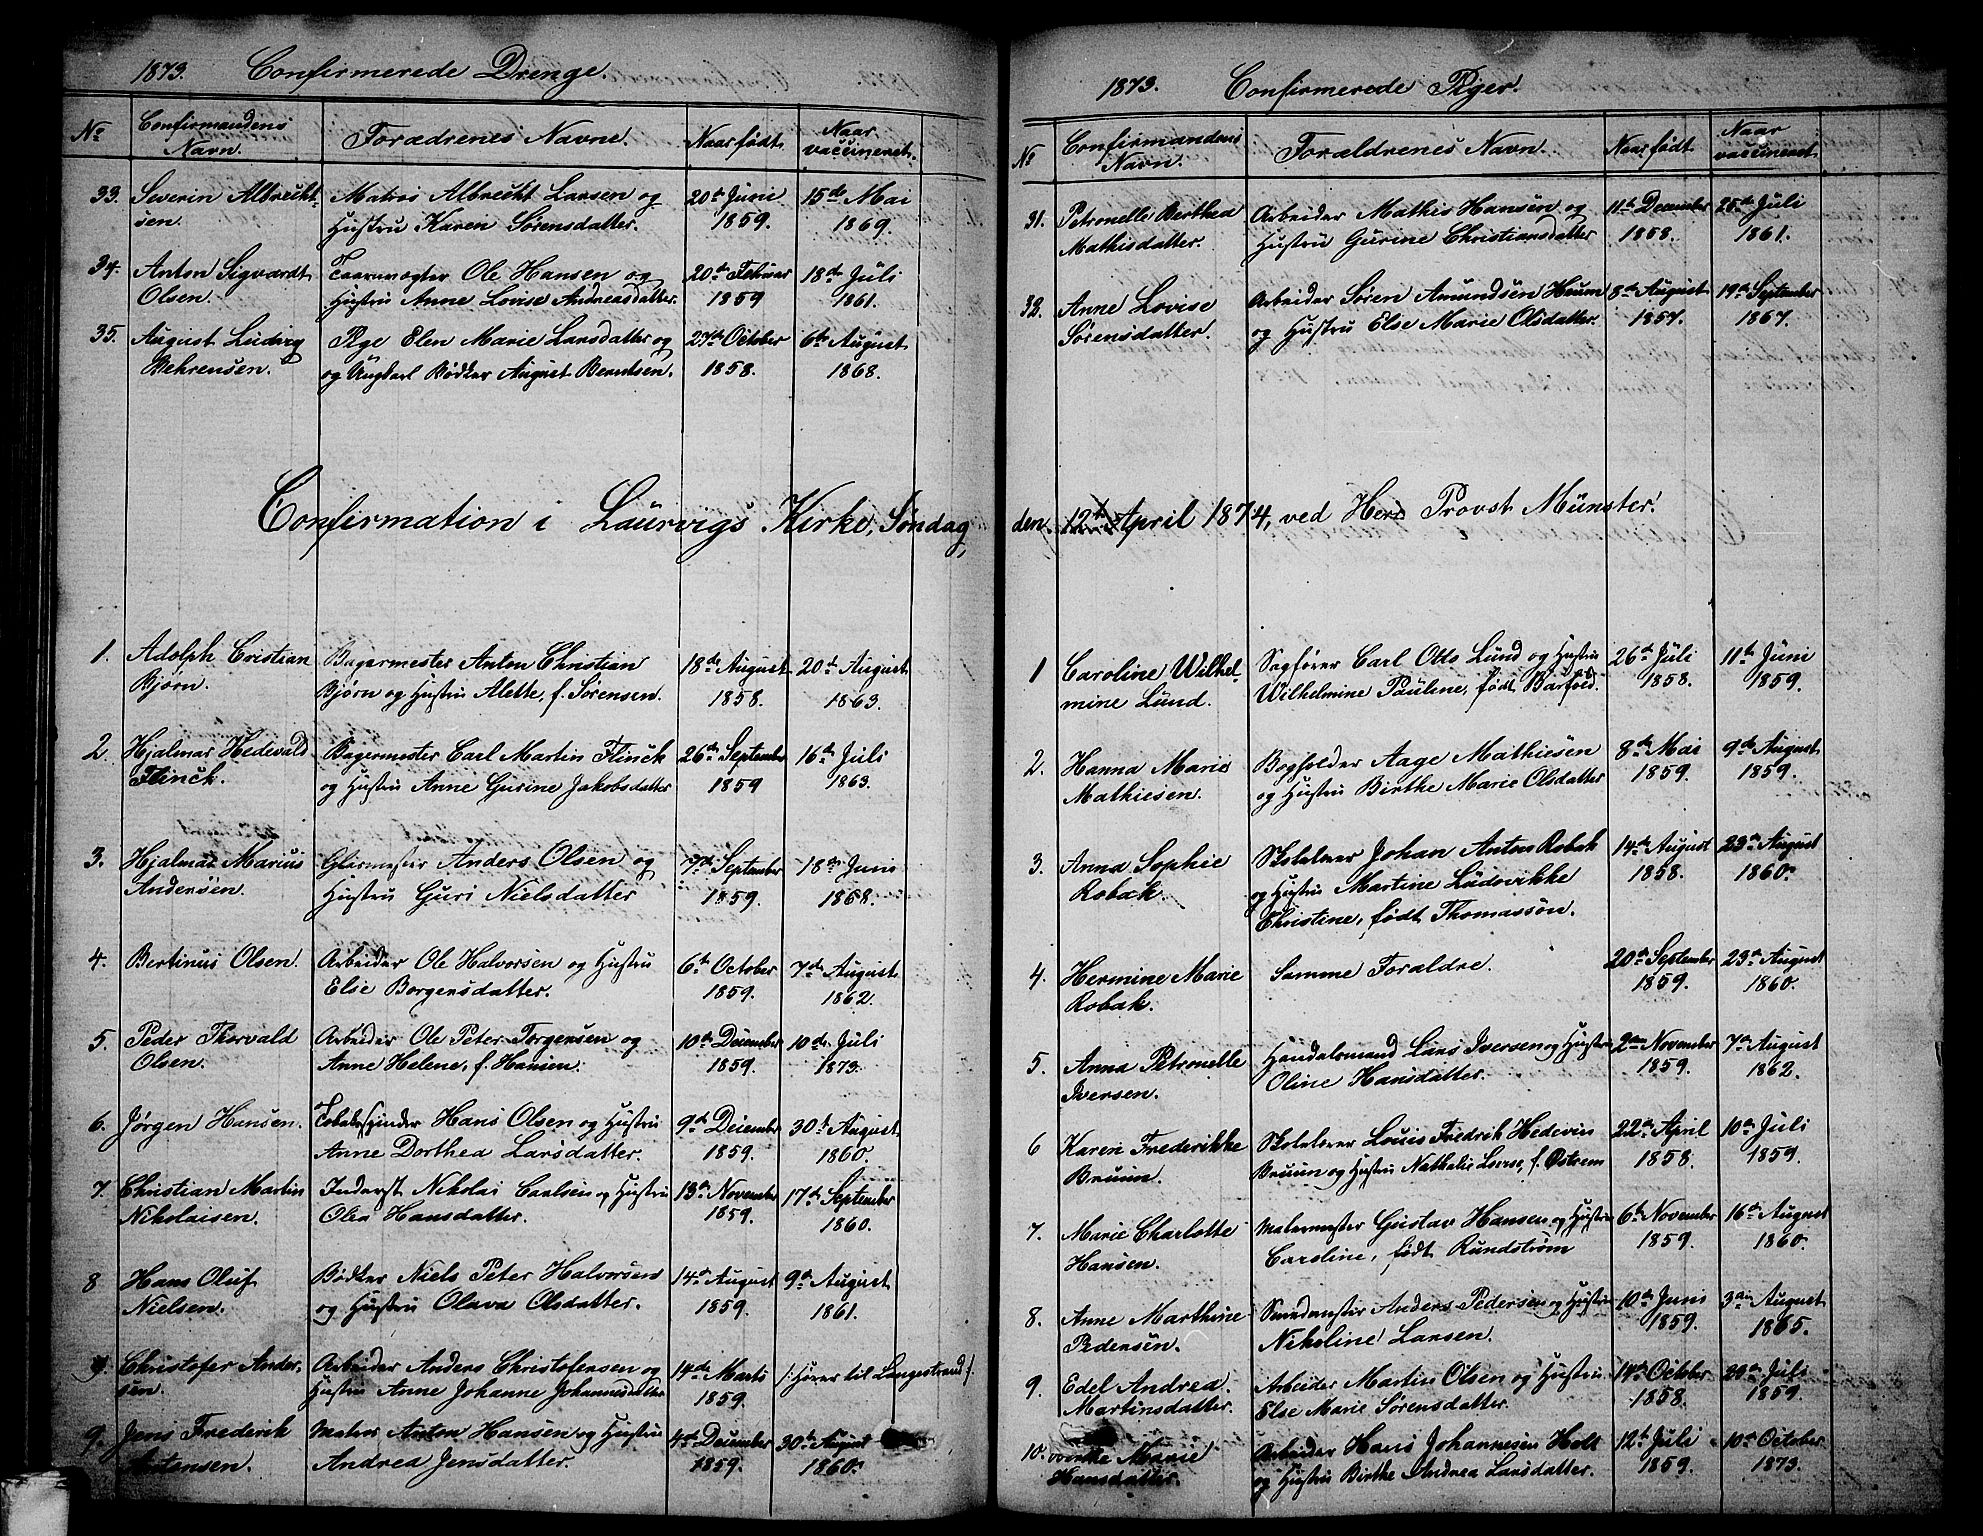 1873. Confirmerede Drenge.
No Confirmandens Navn. Forædrenes Navne. Naar født Naar vaccineret.
33. Severin Albrecht- Matros Albrecht Larsen og 20de Juni 15de Mai
sen. Hustru Karen Sørensdatter. 1859. 1869.
34. Anton Sigvardt Taarnvogter Ole Hansen og 20de Februar 18de Juli
Olsen. Hustru Anne Lovise Andreasdatter. 1859 1861.
35. August Ludvig Pige Elen Marie Larsdatter og 27de October 6te August
Behrensen. og Ungkarl Bødker August Berentsen. 1858. 1868.
Confirmation i Laurvigs Kirke, Søndag,
1. Adolph Cristian Bagermester Anton Christian 18de August 20de August
Bjørn. Bjørn og Hustru Alette, f. Sørensen. 1858. 1863.
2. Hjalmar Hedevald Bagermester Carl Martin Flinck 26de September 16de Juli
Flinck. og Hustru Anne Gurine Jakobsdatter 1859 1863.
3. Hjalmar Marius Glarmester Anders Olsen og 7de September 18de Juni
Andersen. Hustru Guri Nielsdatter 1859. 1868.
4. Bertinus Olsen. Arbeider Ole Halvorsen og Hustru 6te October 7de August
Else Borgersdatter. 1859. 1862.
5. Peder Thorvald Arbeider Ole Peter Torgersen og 10de December 10de Juli
Olsen. Anne Helene, f. Hansen. 1859. 1873.
6. Jørgen Hansen. Tobakspinder Hans Olsen og Hustru 9de December 30te August
Anne Dorthea Larsdatter. 1859. 1860.
7. Christian Martin Inderst Nikolai Carlsen og Hustru 13de November 17de September
Nikolaisen. Olea Hansdatter. 1859. 1860.
8 Hans Oluf Bødker Niels Peter Halvorsen 14de August 9de August
Nielsen. og Hustru Olava Olsdatter. 1859. 1861.
Christofer Ander- Arbeider Anders Christofersen og 14de Marts /: Hører til Langestrand :/
sen. Hustru Anne Johanne Johannesdatter 1859.
9. Jens Frederik Matros Anton Hansen og Hustru 4de December 30te August
Antonsen. Andrea Jensdatter. 1859. 1860.
1873. Confirmerede Piger.
No Confirmandens Navn. Forældrenes Navn. Naar født Naar vaccineret
31. Petronelle Berthea Arbeider Mathis Hansen og 11te December 25de Juli
Mathisdatter. Hustru Gurine Christiansdatter 1858. 1861.
32. Anne Lovise Arbeider Søren Amundsen Heum 8de August 19de September
Sørensdatter. og Hustru Else Marie Olsdatter. 1857. 1867.
den 12te April 1874, ved Herr Provst Münster.
1 Caroline Wilhel- Sagfører Carl Otto Lund og Hustru 26de Juli 11te Juni
mine Lund. Wilhelmine Pauline, født Barfod. 1858. 1859.
2. Hanna Marie Bogholder Aage Mathiesen 8de Mai 9de August
Mathiesen. og Hustru Birthe Marie Olsdatter 1859. 1859.
3. Anna Sophie Skolelærer Johan Anton Robak 14de August 23de August
Robak. og Hustru Martine Ludovikke 1858. 1860.
Christine, født Thomassøn.
4. Hermine Marie Samme Forældre. 20de September 23de August
Robak. 1859. 1860.
5. Anna Petronelle Handelsmand Lars Iversen og Hustru 2den November 7de August
Iversen. Oline Hansdatter. 1859. 1862.
6 Karen Frederikke Skolelærer Louis Fredrik Hedevin 22de April 10de Juli
Bruun. Bruun og Hustru Nathalie Lovise, f. Østrem 1858. 1859.
7. Marie Charlotte Malermester Gustav Hansen og Hustru 6te November 16de August
Hansen. Caroline, født Rundstrøm 1859. 1860.
8. Anne Marthine Anders Pedersen og Hustru 10de Juni 3die August
Pedersen. Nikoline Larsen. 1859. 1865.
9. Edel Andrea Arbeider Martin Olsen og Hustru 14de October 29de Juli
Martinsdatter. Else Marie Sørensdatter. 1858. 1859
10. Marie Arbeider Hans Johannesen Holt 12te Juli 10de October
Hansdatter. og Hustru Birthe Andrea Larsdatter. 1859. 1873.